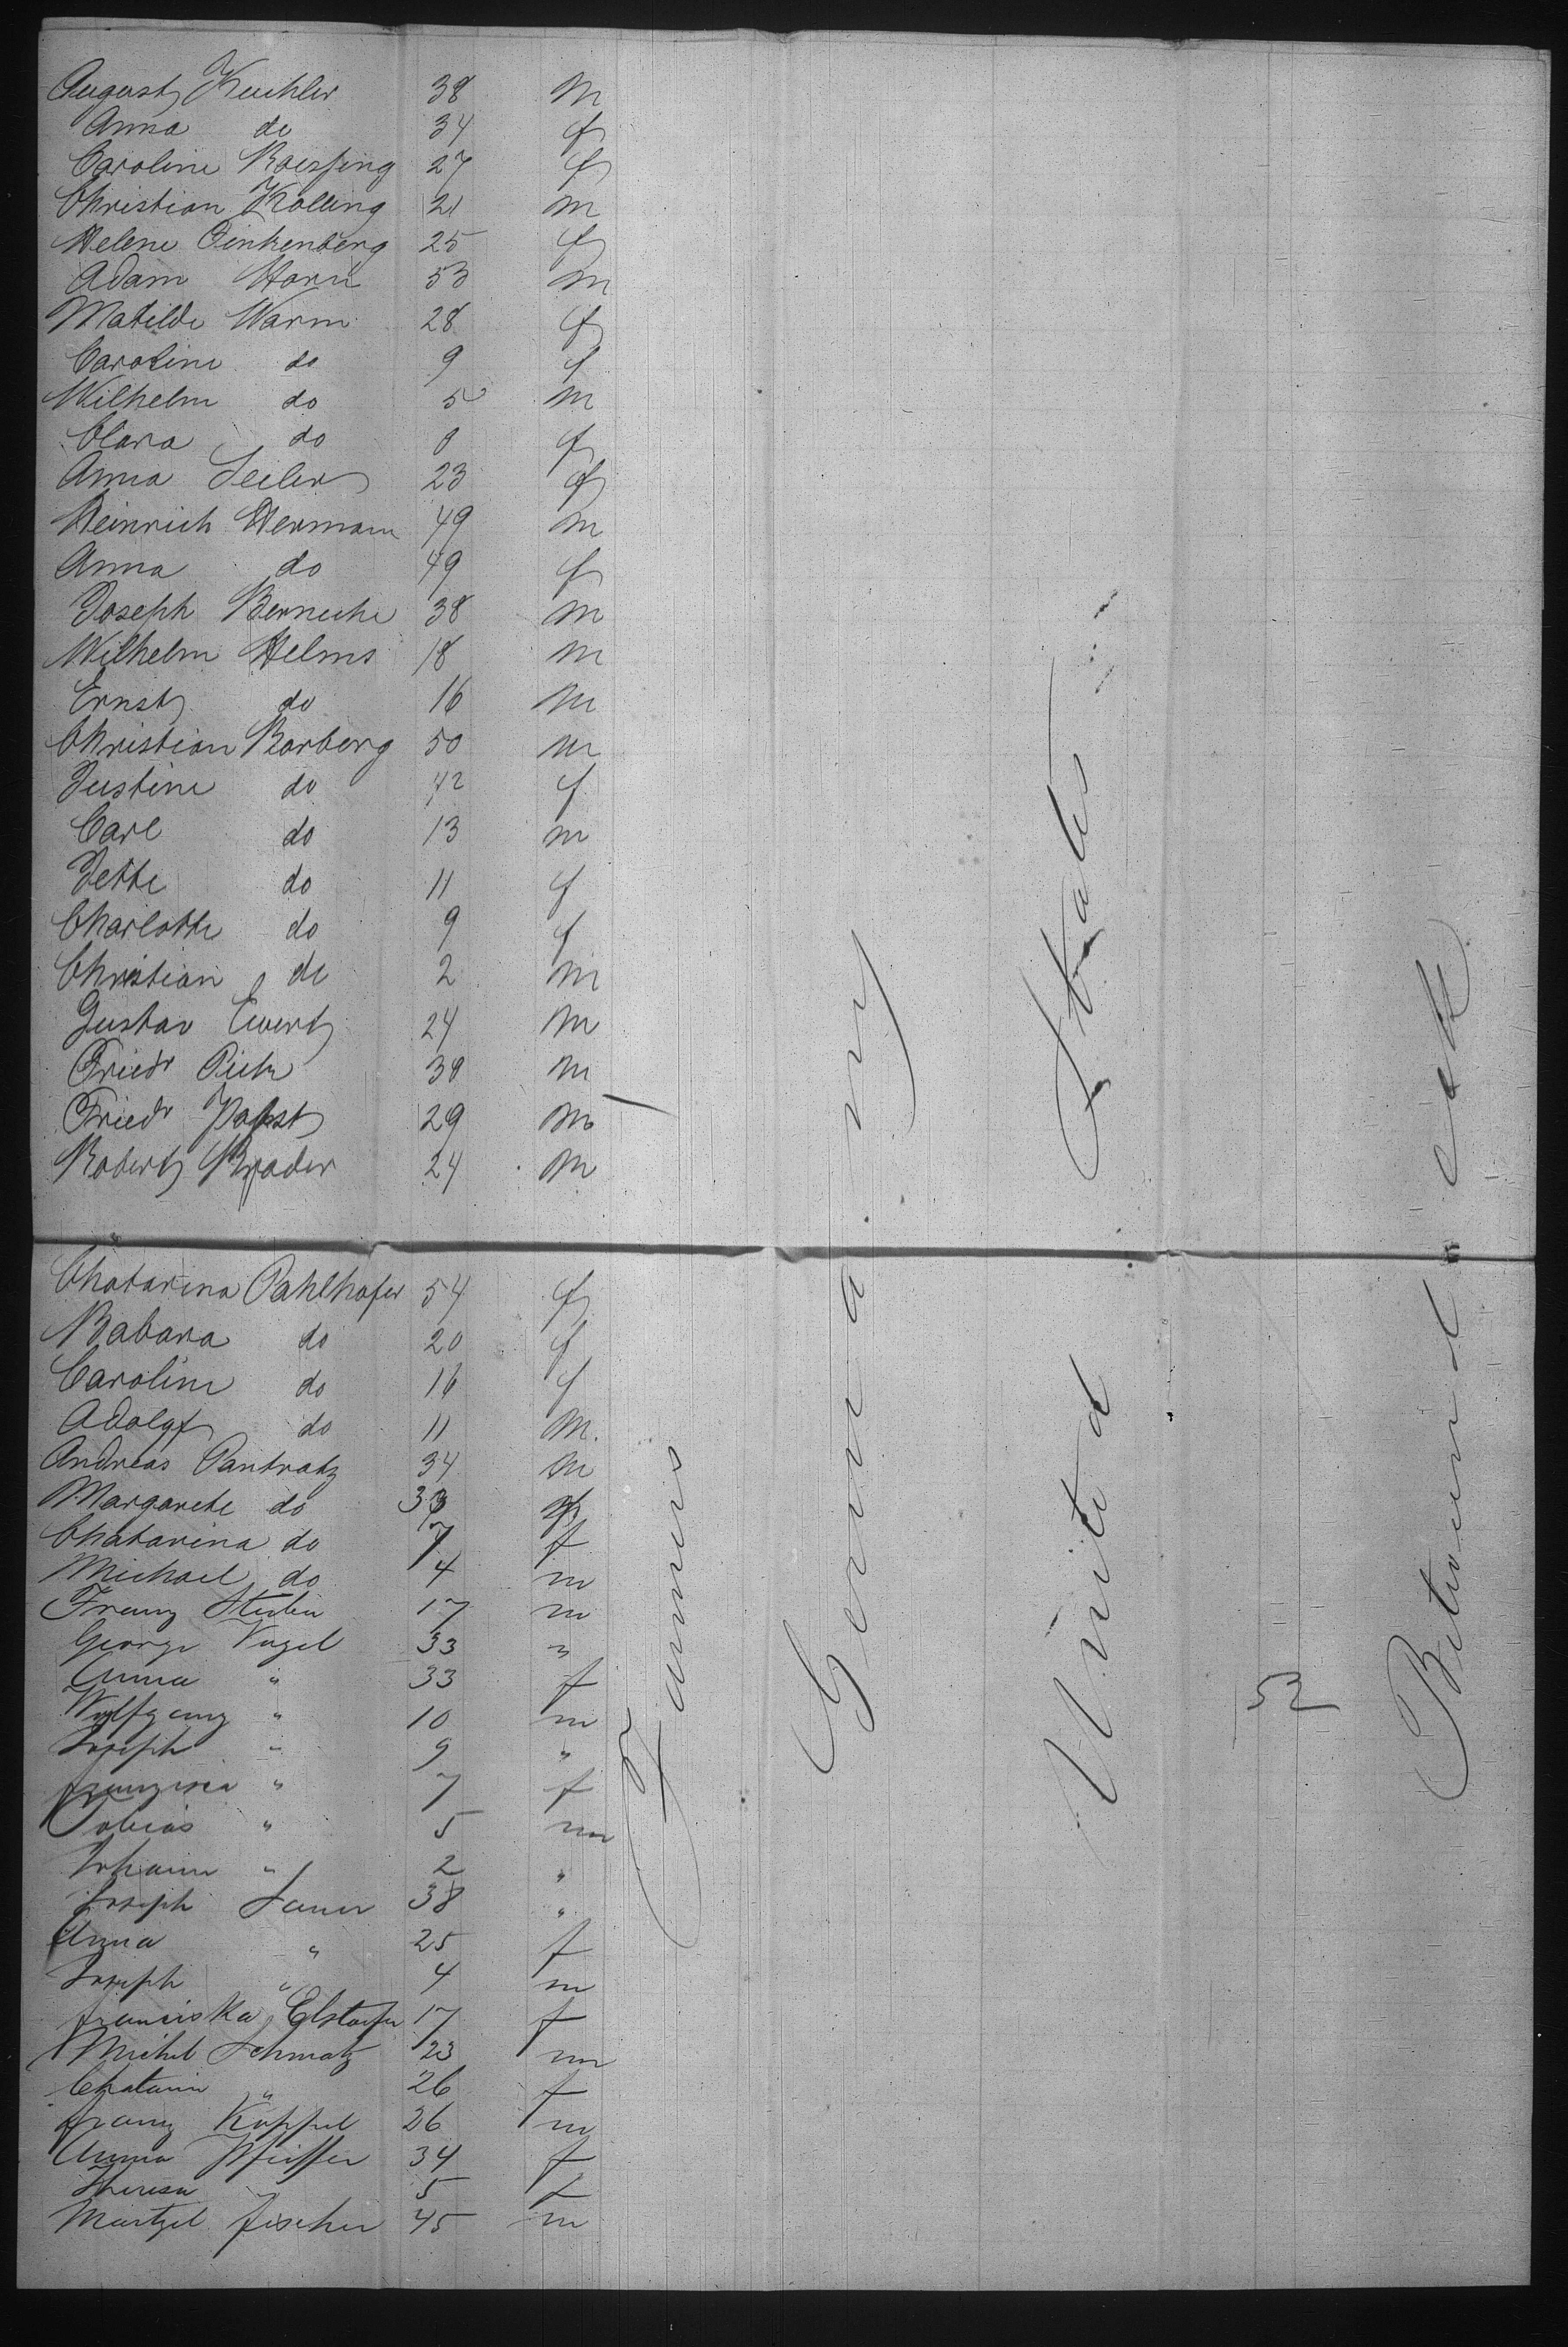 August Kuchler 38 m
Anna do 34 f
Caroline 27 f
Christian Kolling 21 m
Helene 25 f
Adam Horn 53 m
Matilde Warm 28 f
Caroline do 9 f
Wilhelm do 5 m
Clara do 0 f
Anna Seiler 23 f
Heinrich Hermann 49 m
Anna do 49 f
Joseph 38 m
Wilhelm Helms 18 m
Ernst do 16 m
Christian Barberg 50 m
Justine do 42 f
Carl do 13 m
Jette do 11 f
Charlotte do 9 f
Christian do 2 m
Gustav Ewert 24 m
Friedr 38 m
Friedr Pabst 29 m
Robert 24 m
Chatarina Pahlhofer 54 f
Babara do 20 f
Caroline do 16 f
Adolgf do 11 m.
Andreas Pantratz 34 m
Margarete do f
Chatarina do 7 f
Michael do 4 m
Franz 17 m
George Vogel 33 m
Anna " 33 f
Wolfgang " 10 m
Joseph " 9 "
" 7 f
Tobias " 5 m
Johann " 2 "
Joseph 38 "
Anna " 25 f
Joseph " 4 m
Franciska 17 f
Michel Schmatz 23 m
" 26 f
Franz Köppel 26 m
Anna Pfeiffer 34 f
Theresa 5 f
Fischer 45 m
Farmers
Germany
United States
52
Between deck